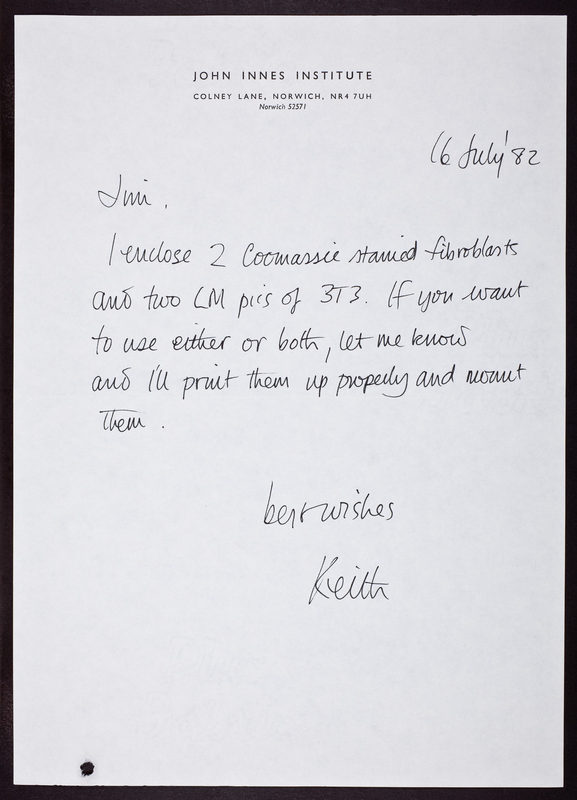 JOHN INNES INSTITUTE
COLNEY LANE, NORWICH, NR4 7UH
Norwich 52571
16 July '82
Jim,
I enclose 2 Coomassie stained fibroblasts
and two LM pics of 3T3. If you want
to use either or both, let me know
and I'll print them up properly and mount
them.
best wishes
Keith